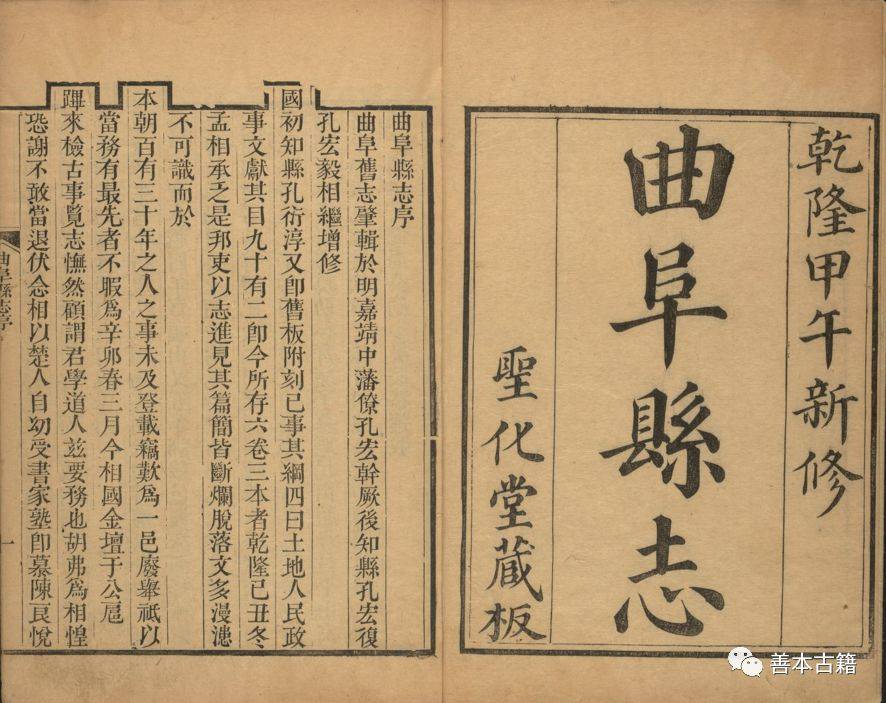 乾隆甲午新修
曲阜縣志
聖化堂蔵板
曲阜縣志序
曲阜舊志肇輯於明嘉靖中藩僚孔宏幹厥後知縣孔宏復
孔宏毅相繼增修
國初知縣孔衍淳又卽舊板附刻已事其綱四曰土地人民政
事文獻其目九十有二卽今所存六卷三本者乾隆已丑冬
孟相承乏是邦吏以志進見其篇簡皆斷爛脫落文多漫漶
不可識而於
本朝百有三十年之人之事未及登載竊歎爲一邑廢舉祇以
當務有最先者不暇爲辛卯春三月今相國金壇于公扈
蹕來檢古事覧志憮然顧謂君學道人茲要務也胡弗爲相惶
恐謝不敢當退伏念相以楚人自幼受書家塾卽慕陳良悅
曲阜縣志序
一
善本古籍